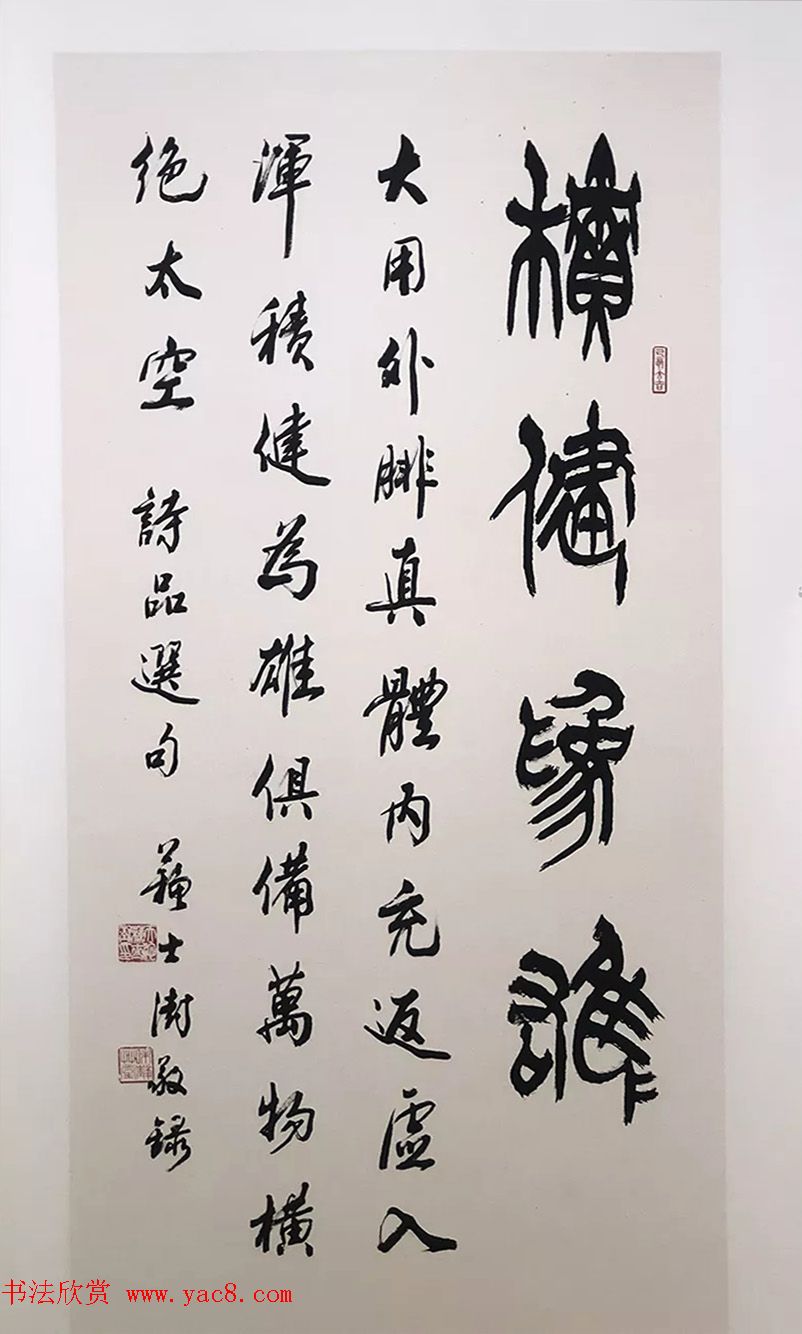 積健為雄
大用外腓真體內充返虛入
渾積健為雄俱備萬物橫
絕太空 詩品選句 蘇士澍敬錄
书法欣赏 www.yac8.com